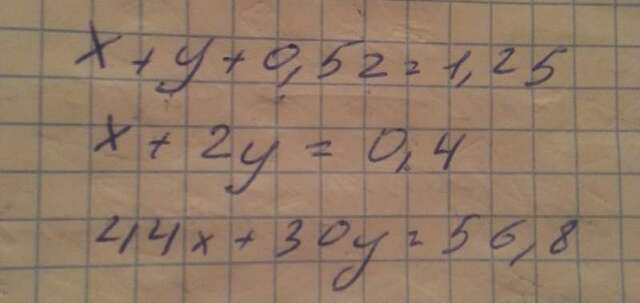 x+y+0,5z=1,25
x+2y=0,4
44x+30y=56,8